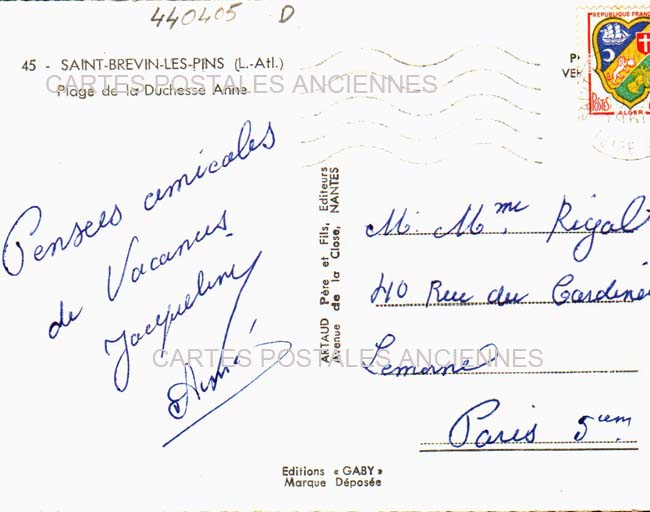 440405 D
45 - SAINT-BREVIN-LES-PINS (L.-Atl.)
CARTES POSTALES ANCIENNES
Plage de la Duchesse Anne
REPUBLIQUE FRANC
POSTES
ALGER
Pensées amicales
de Vacances
Jacqueline
ARTAUD Père et Fils, Editeurs
Avenue de la Close, NANTES
M. Mme Rigal
40 Rue du Cardinal
Lemoine
Paris 5em
CARTES POSTALES ANCIENNES
Editions « GABY »
Marque Déposée